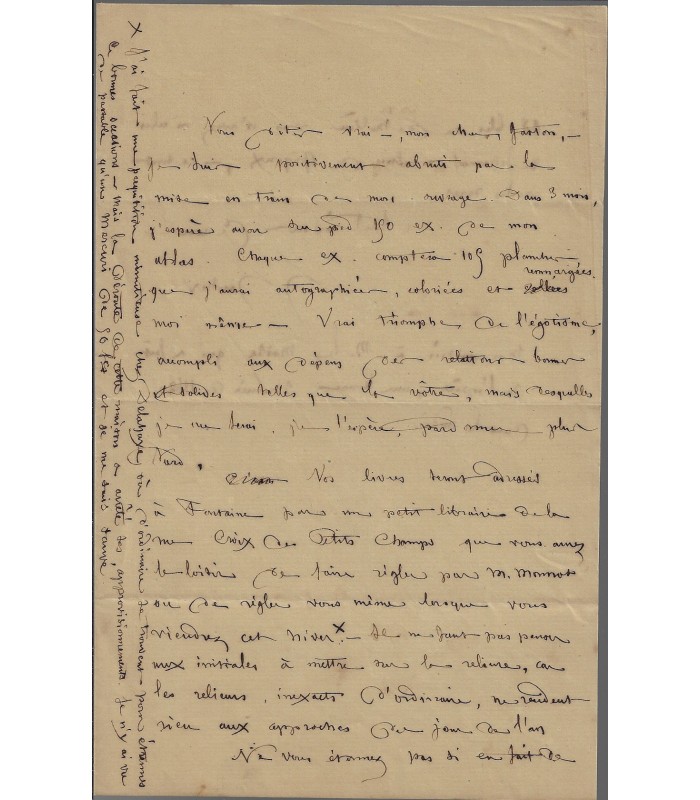 Vous dites vrai –, mon cher Gaston, –
je suis positivement abruti par la
mise en train de mon ouvrage. Dans 3 mois,
j'espère avoir sur pied 150 ex. de mon
atlas. Chaque ex. comptera 105 planches
que j'aurai autographiées, coloriées et collées remmargées
moi même – Vrai triomphe de l'égotisme,
accompli aux dépens des relations bonnes
et solides telles que la vôtre, mais desquelles
je me serai, je l'espère, plus
tard.
Vos livres seront adressés
à Fontaine par un petit libraire de la
rue Croix des Petits Champs que vous aurez
le loisir de faire régler par M. Monnot
ou de régler vous même lorsque vous
viendrez cet hiver x. – Il ne faut pas penser
aux initiales à mettre sur la reliure, car
les relieurs, inexacts d'ordinaire, ne rendent
rien aux approches du jour de l'an
Ne vous étonnez pas si en fait de
x J'ai fait une perquisition minutieuse chez Delahaye, où d'ordinaire se trouvent – pour étrennes
de bonnes occasions – mais la déroute de cette maison a arrêté ses approvisionnements. Je n'y ai vu
de passable qu'une Mercuri de 50 frs et je me suis